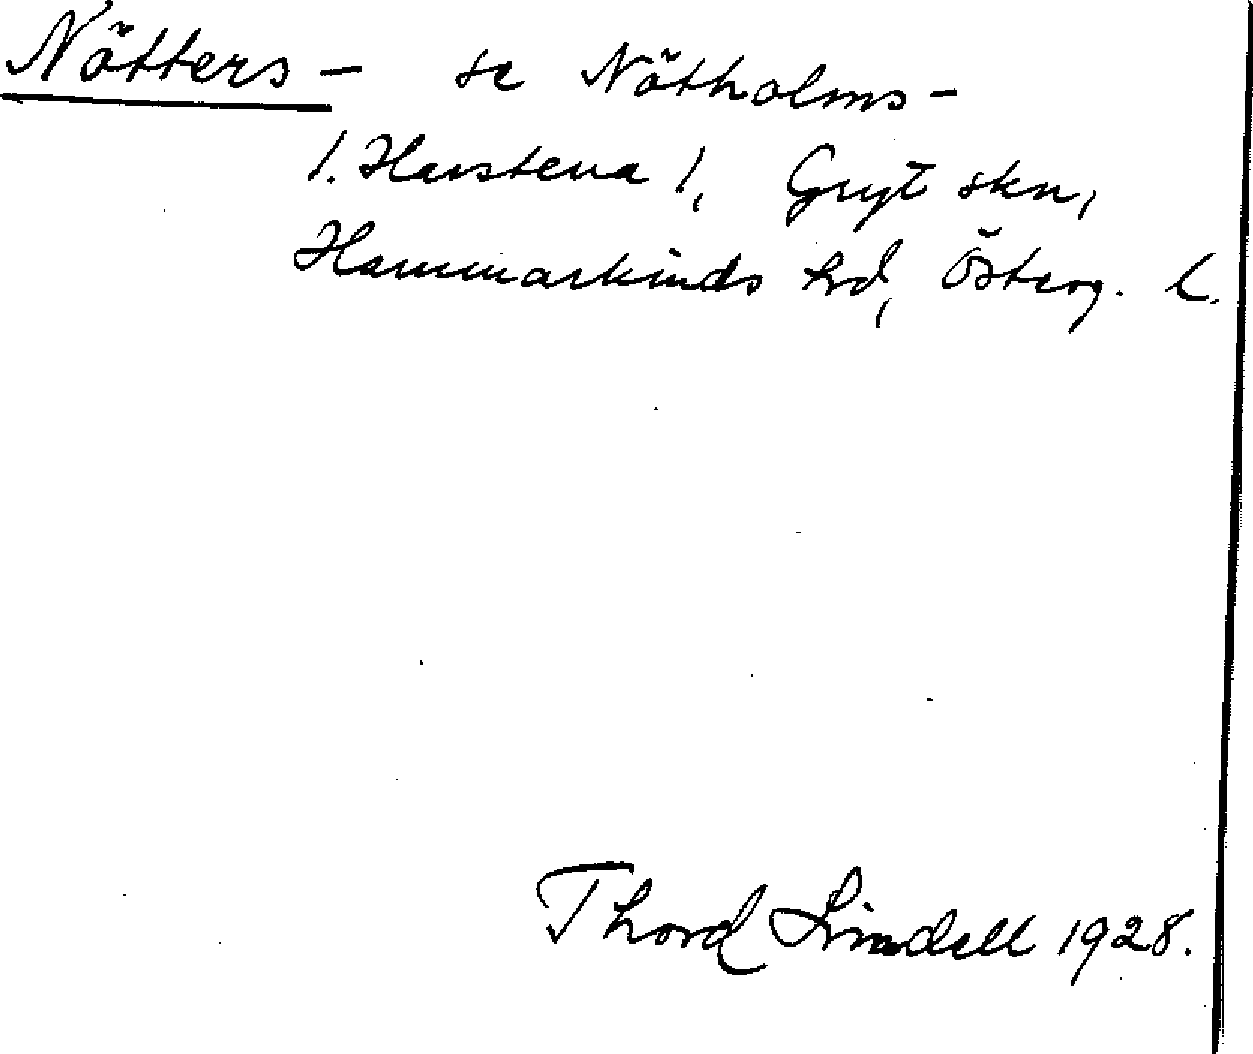 Nötters- se Nötholms-
1. Harstena 1, Gryt skn,
Hammarkinds hd, Österg. l.
Thord Lindell 1928.